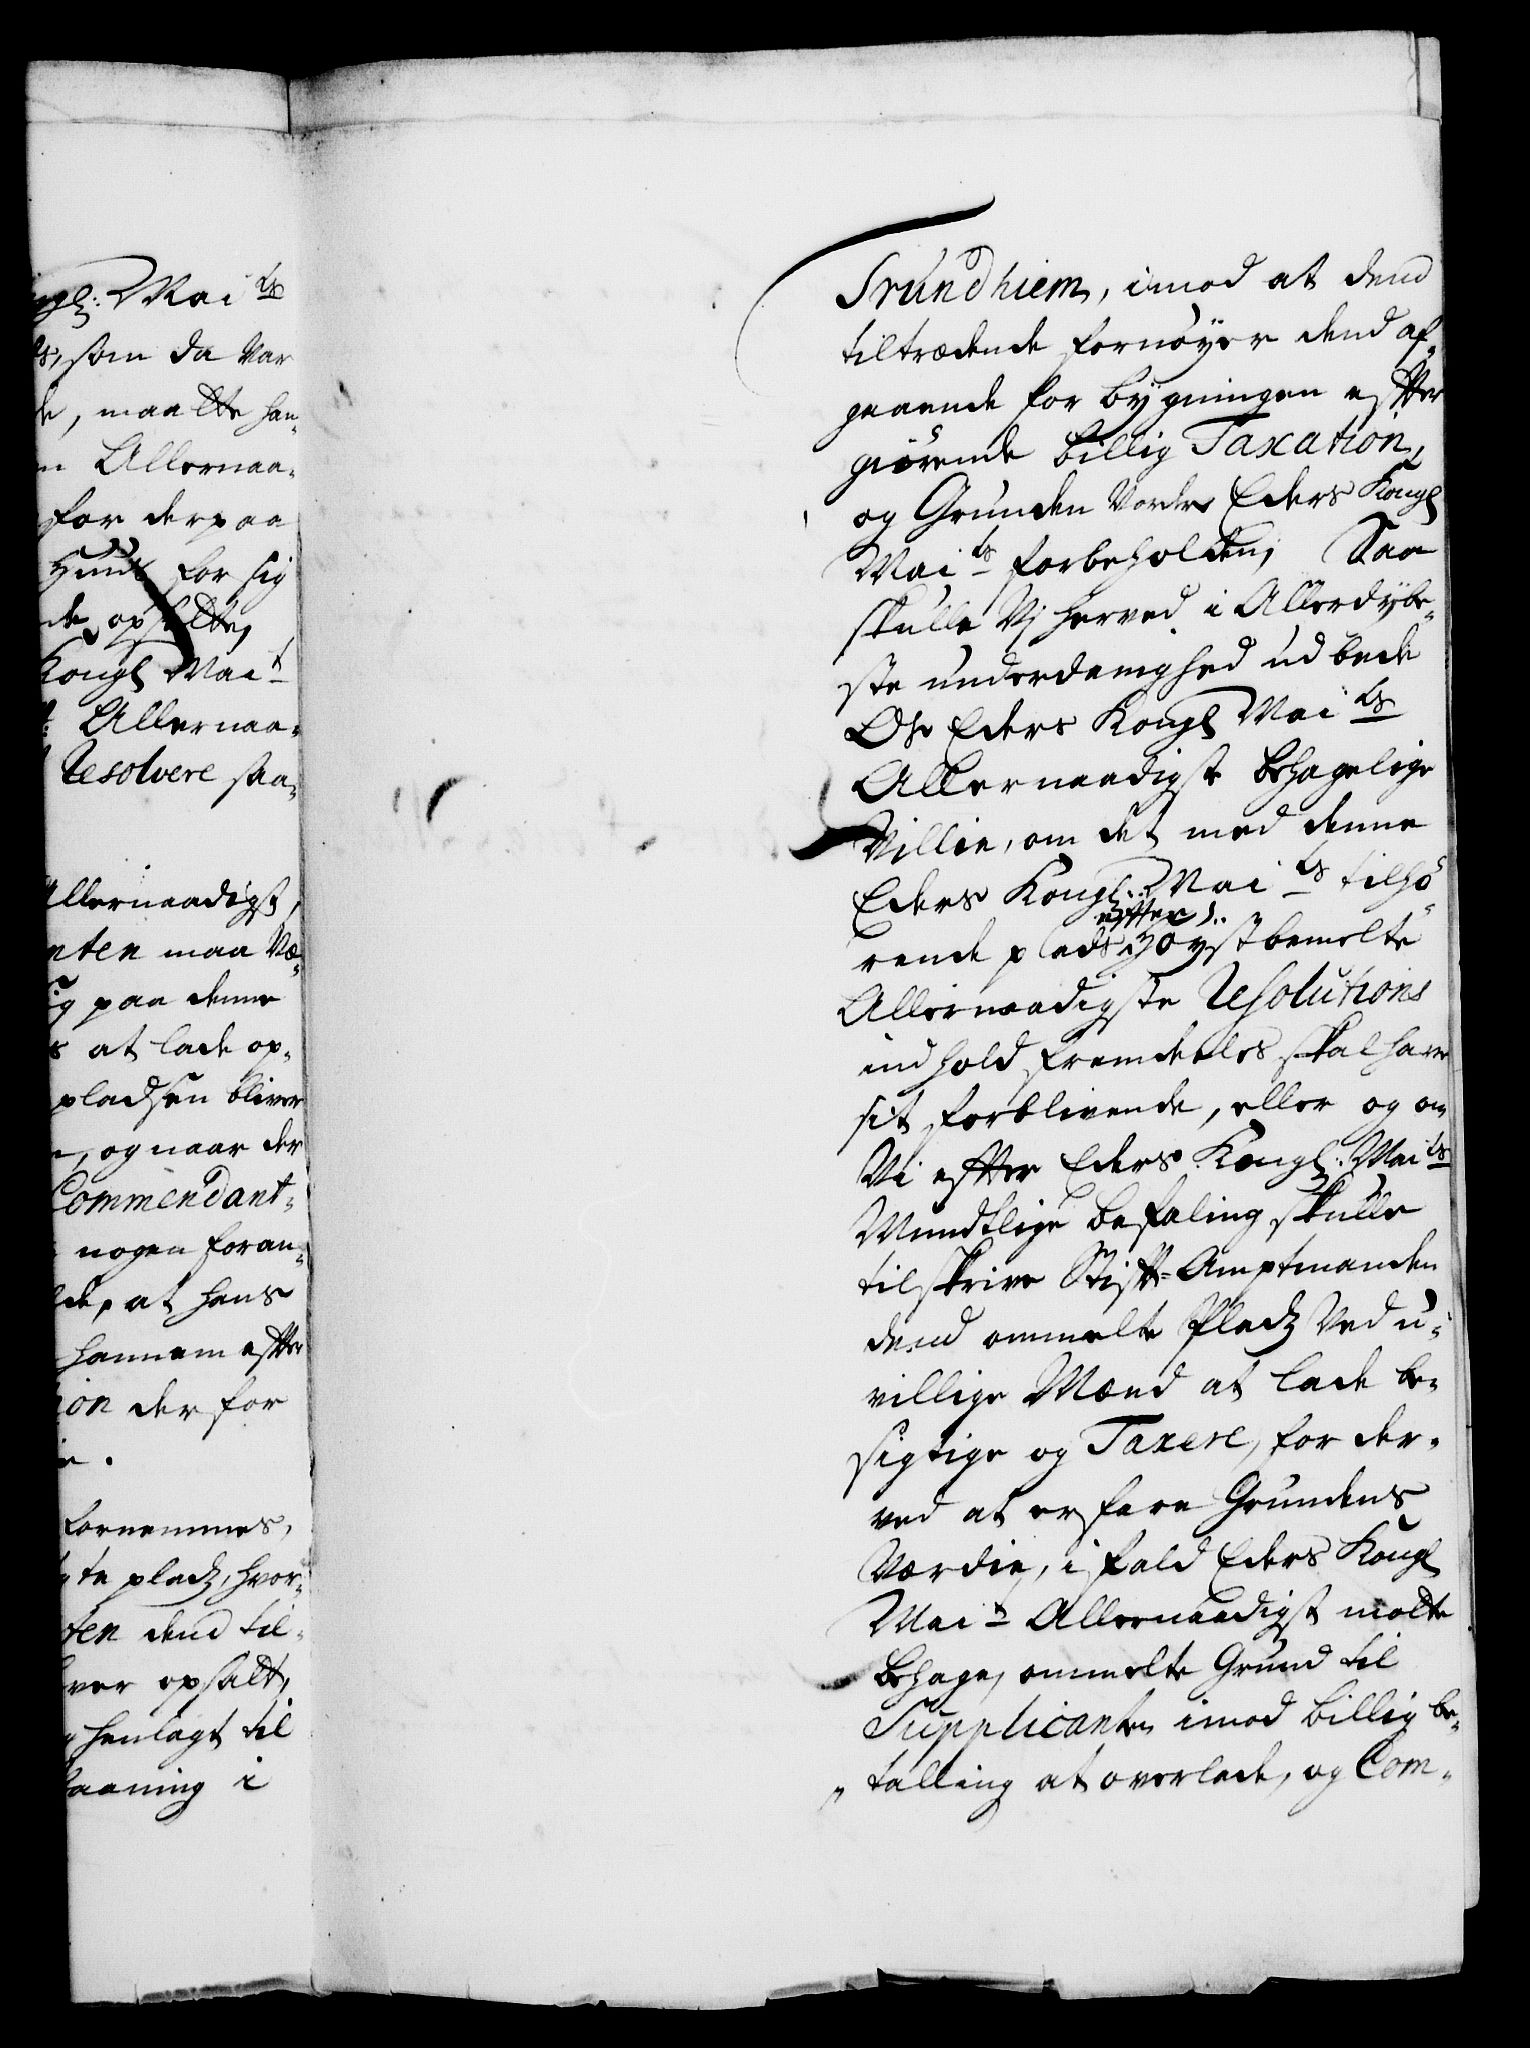 ngl: Mai ts
ds, som da var
de, maatte han-
m Allernaa-
for derpaa
Huus for sig
de opsette,
Kongl Mai t
Allernaa-
Resolvere saa-
Allernaadigst,
nten maa Væ-
sig paa denne
s at lade op-
pladsen bliver
e, og naar der
Commendant-
nogen foran-
lde, at hans
hannem effter
ion der for
e.
fornemmes,
gte pladz, hvor-
ten dend til-
ver opsatt,
henlagt til
staaning i
Trundhiem, imod at dend
tiltrædende fornøyer dend af-
gaaende for bygningen effter
giørende billig Taxation,
og Grunden Vorder Eders Kongl
Mai ts forbeholden, Saa
skulle Vj herved i Allerdybe-
ste underdanighed udbede
Os Eders Kongl Mai ts
Allernaadigst behagelige
Villie, om det med denne
Eders Kongl: Mai ts tilhø-
rende plads effter Høystbemelte
Allernaadigste Resolutions
indhold fremdeeles skal have
sit forblivende, eller og om
Vi effter Eders Kongl: Mai ts
Mundtlige befaling skulle
tilskrive Stifft-Amptmanden
dend ommelte Pladz Ved u-
villige Mænd at lade be-
sigtige og Taxere, for der-
ved at erfare Grundens
Værdie, i fald Eders Kongl
Mai t Allernaadigst motte
behage, ommelte Grund til
Supplicanten imod billig be-
talling at overlade, og Com-